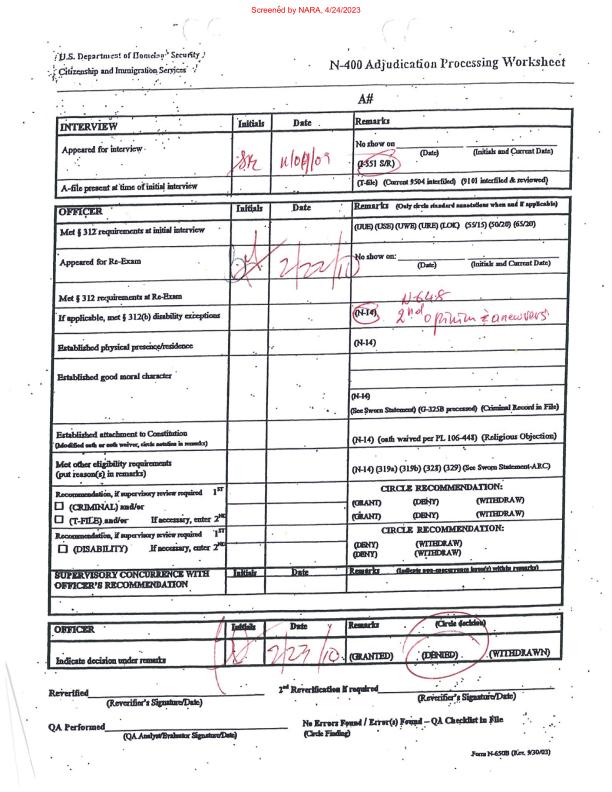 Screened by NARA, 4/24/2023
U.S. Department of Homeland Security
Citizenship and Immigration Services
N-400 Adjudication Processing Worksheet
A#
INTERVIEW Initials Date Remarks
Appeared for interview No show on
(Date) (Initials and Current Date)
(I-551 S/R)
A-file present at time of initial interview (T-file) (Current 9504 interfiled) (9101 interfiled & reviewed)
OFFICER Initials Date Remarks (Only circle standard annotations when and if applicable)
Met § 312 requirements at initial interview (UUE) (USE) (UWE) (URE) (LOK) (55/15) (50/20) (65/20)
Appeared for Re-Exam 2/22/10 No show on:
(Date) (Initials and Current Date)
Met § 312 requirements at Re-Exam N-648
If applicable, met § 312(b) disability exceptions (N-14) 2nd opinion
Established physical presence/residence (N-14)
Established good moral character
(N-14)
(See Sworn Statement) (G-325B processed) (Criminal Record in File)
Established attachment to Constitution
(Modified oath or oath waiver, circle notation in remarks) (N-14) (oath waived per PL 106-448) (Religious Objection)
Met other eligibility requirements
(put reason(s) in remarks) (N-14) (319a) (319b) (328) (329) (See Sworn Statement-ARC)
Recommendation, if supervisory review required 1ST CIRCLE RECOMMENDATION:
☐ (CRIMINAL) and/or (GRANT) (DENY) (WITHDRAW)
☐ (T-FILE) and/or If necessary, enter 2ND (GRANT) (DENY) (WITHDRAW)
Recommendation, if supervisory review required 1ST CIRCLE RECOMMENDATION:
☐ (DISABILITY) If necessary, enter 2ND (DENY) (WITHDRAW)
(DENY) (WITHDRAW)
SUPERVISORY CONCURRENCE WITH Initials Date Remarks (Indicate non-concurrence item(s) within remarks)
OFFICER'S RECOMMENDATION
OFFICER Initials Date Remarks (Circle decision)
Indicate decision under remarks 2/23/10 (GRANTED) (DENIED) (WITHDRAWN)
Reverified 2nd Reverification if required
(Reverifier's Signature/Date) (Reverifier's Signature/Date)
QA Performed No Errors Found / Error(s) Found – QA Checklist in File
(QA Analyst/Evaluator Signature/Date) (Circle Finding)
Form N-650B (Rev. 9/30/03)